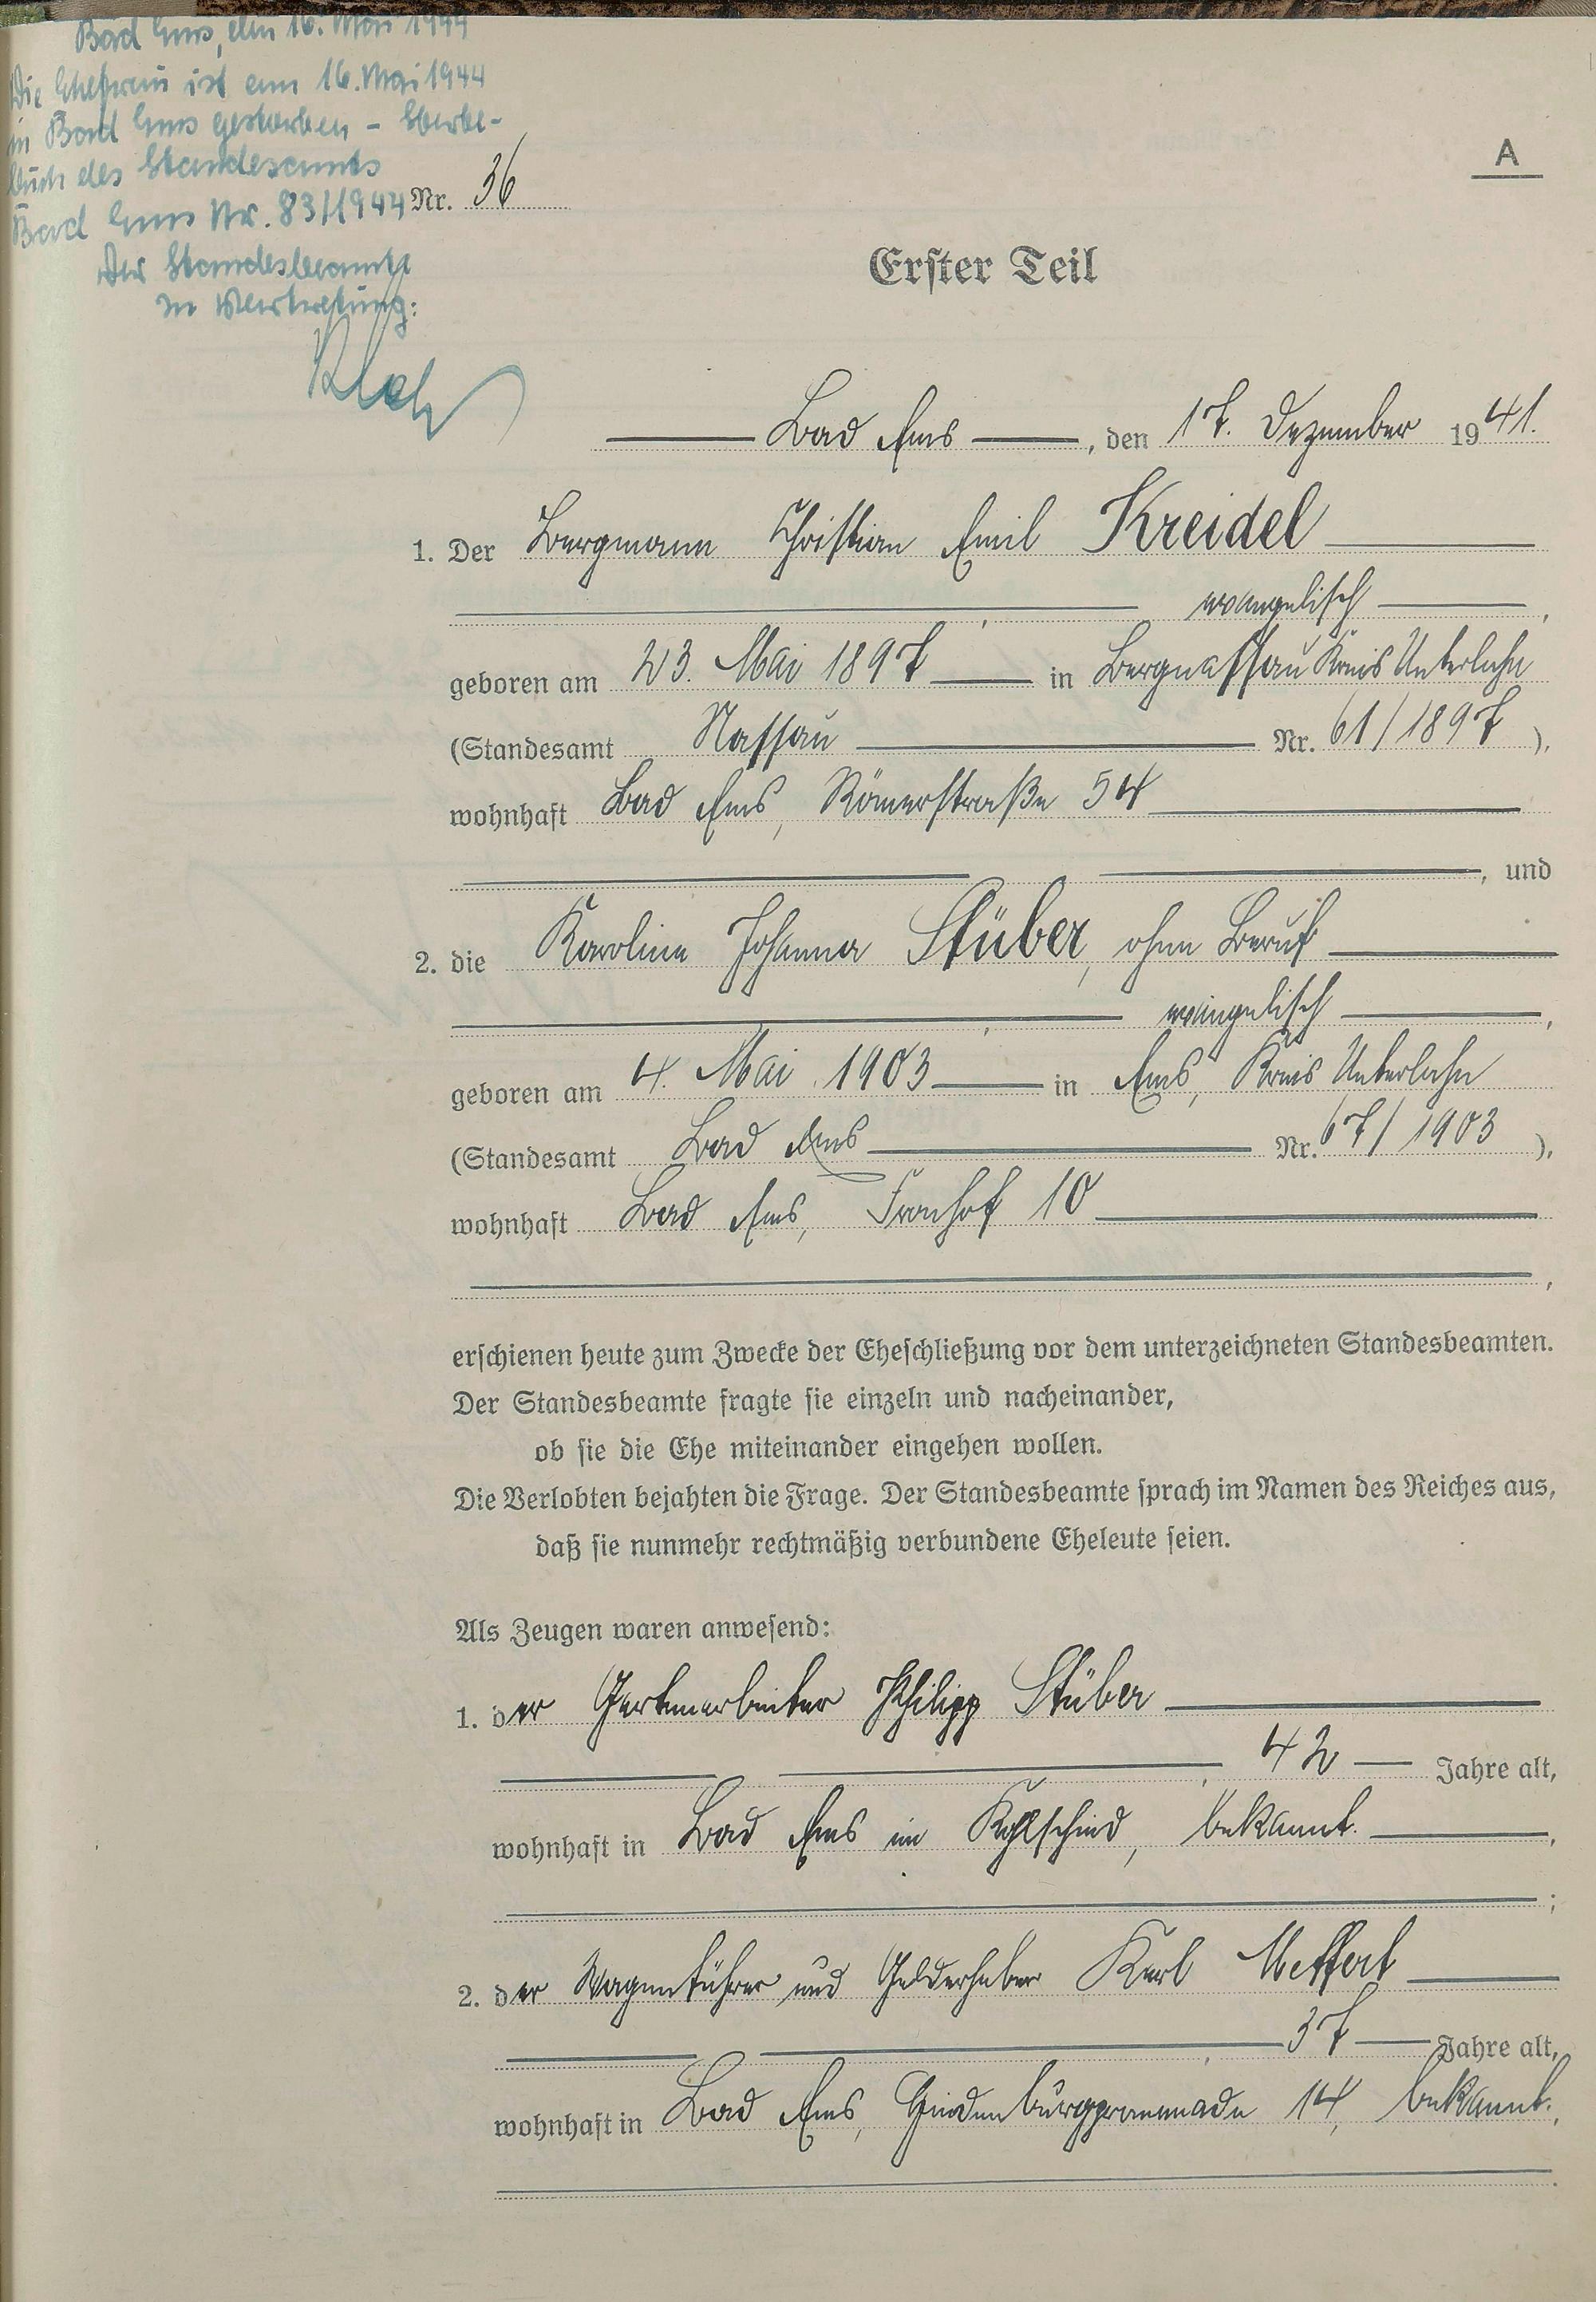 Bad Ems, den 16. Mai 1944
Die Ehefrau ist am 16. Mai 1944
in Bad Ems gestorben - Sterbe-
buch des Standesamts
Bad Ems Nr. 83/1944
Der Standesbeamte
In Vertretung:
A
Nr. 36
Erster Teil
Bad Ems, den 17. Dezember 1941.
1. Der Bergmann Christian Emil Kreidel
, evangelisch ,
geboren am 23. Mai 1897 in Bergnassau Kreis Unterlahn
(Standesamt Nassau Nr. 61/1897 ),
wohnhaft Bad Ems, Römerstraße 54
, und
2. die Karoline Johanna Stüber, ohne Beruf
, evangelisch ,
geboren am 4. Mai 1903 in Ems, Kreis Unterlahn
(Standesamt Bad Ems Nr. 67/1903 ),
wohnhaft Bad Ems, Fronhof 10
,
erschienen heute zum Zwecke der Eheschließung vor dem unterzeichneten Standesbeamten.
Der Standesbeamte fragte sie einzeln und nacheinander,
ob sie die Ehe miteinander eingehen wollen.
Die Verlobten bejahten die Frage. Der Standesbeamte sprach im Namen des Reiches aus,
daß sie nunmehr rechtmäßig verbundene Eheleute seien.
Als Zeugen waren anwesend:
1. der Gartenarbeiter Philipp Stüber
, 42 Jahre alt,
wohnhaft in Bad Ems im bekannt. ,
;
2. der Wagenführer und Gelderheber Karl Meffert
, 37 Jahre alt,
wohnhaft in Bad Ems, Hindenburgpromenade 14, bekannt.,
.